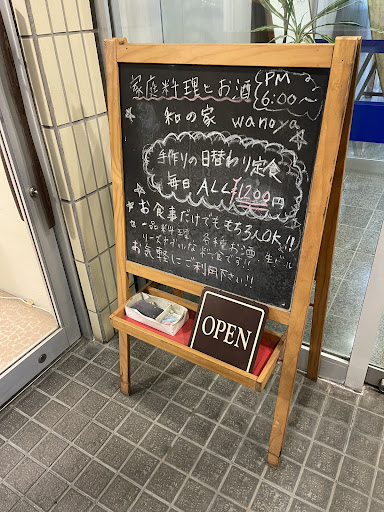 家庭料理とお酒
PM 6:00〜
和の家 wanoya
手作りの日替わり定食
毎日 ALL 1200円
お食事だけでももちろんOK!!
一品料理、各種お酒、生ビール
リーズナブルな料金です!!
お気軽にご利用下さい!!
OPEN